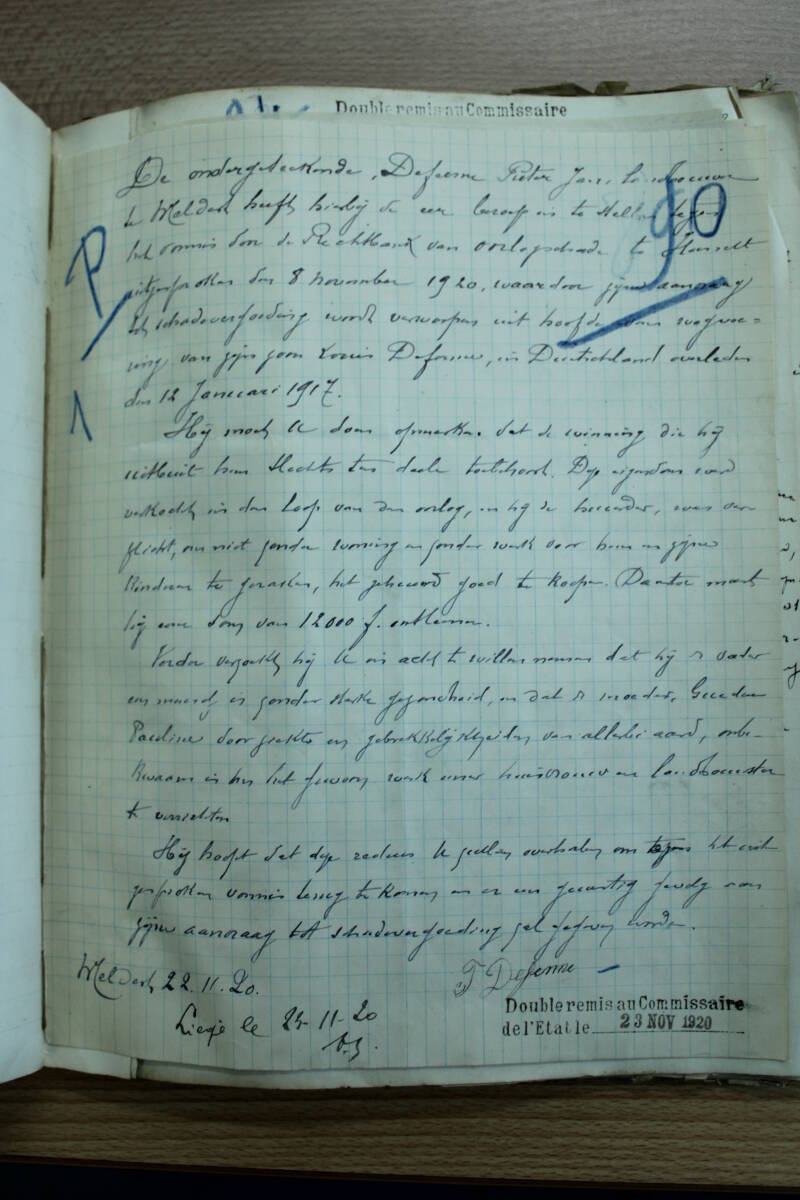 Double remis au Commissaire
90
P
1
De ondergeteekende, Defeerme Pieter Jan, landbouwer
te Meldert heeft hierbij de eer beroep in te stellen tegen
het vonnis door de Rechtbank van oorlogschade te Hasselt
uitgesproken den 8 november 1920, waardoor zijne aanvraag
tot schadevergoeding wordt verworpen uit hoofde van wegvoe=
ring van zijn zoon Louis Defeerme, in Duitschland overleden
den 12 Januari 1917.
Hij moet U doen opmerken dat de winning die hij
uitbuit hem slechts ten deele toebehoort. Dese eigendom werd
verkocht in den loop van den oorlog, en hij de huurder, was ver
plicht, om niet zonder woning en zonder werk voor hem en zijne
kinderen te geraken, het gehuurd goed te koopen. Daartoe moest
hij eene som van 12000 f. ontleenen.
Verder verzoekt hij U in acht te willen nemen dat hij de vader
een man is zonder sterke gezondheid, en dat de moeder,
Pauline door ziekte en gebrekkelijkheden van allerlei aard, onbe-
kwaam is het gewoon werk eener huisvrouw en landbouwster
te verrichten
Hij hoopt dat deze redens U zullen overhalen om tegen het uit
gesproken vonnis terug te komen en er een gunstig gevolg aan
zijne aanvraag tot schadevergoeding zal gegeven worden.
Meldert 22.11.20.
P Defeerme
Liège le 24-11-20
Double remis au Commissaire
de l'Etat le 23 NOV 1920